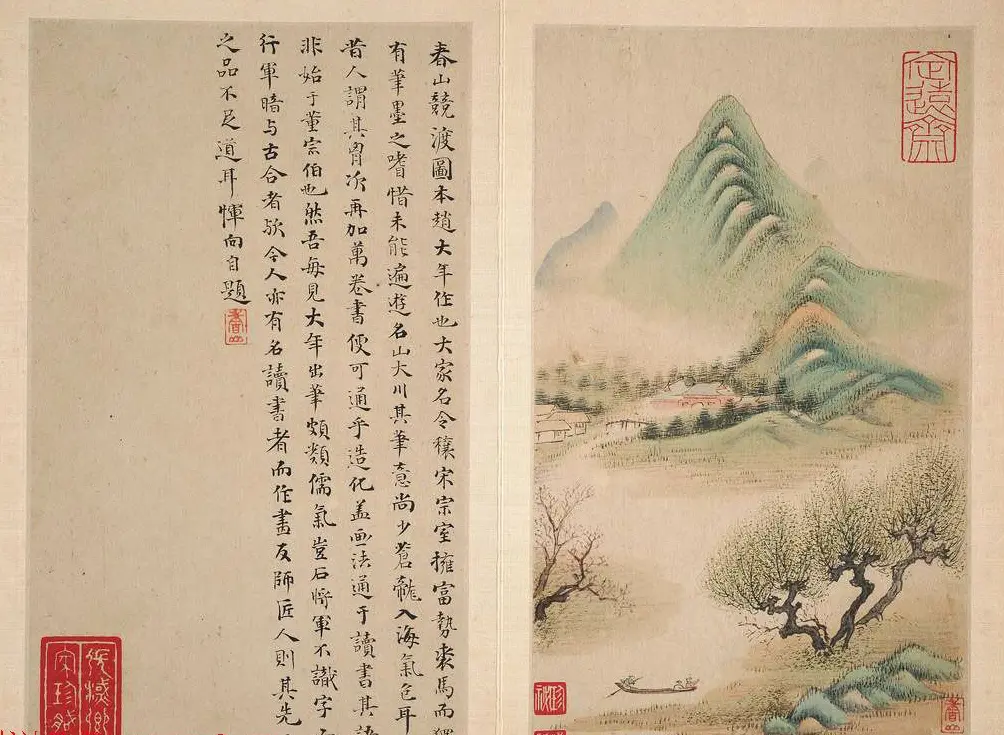 春山競渡圖本趙大年作也大家名令穰宋宗室擁富勢裘馬而獨
有筆墨之嗜惜未能遍遊名山大川其筆意尚少蒼龍入海氣色耳
昔人謂其胷次再加萬卷書便可通乎造化蓋画法通于讀書其語
非始于董宗伯也然吾每見大年出筆頗類儒氣豈石將軍不識字
行軍暗与古合者歟今人亦有名讀書者而作畫友師匠人則其先
之品不足道耳惲向自題
香山
定遠齋
珍秘
香山